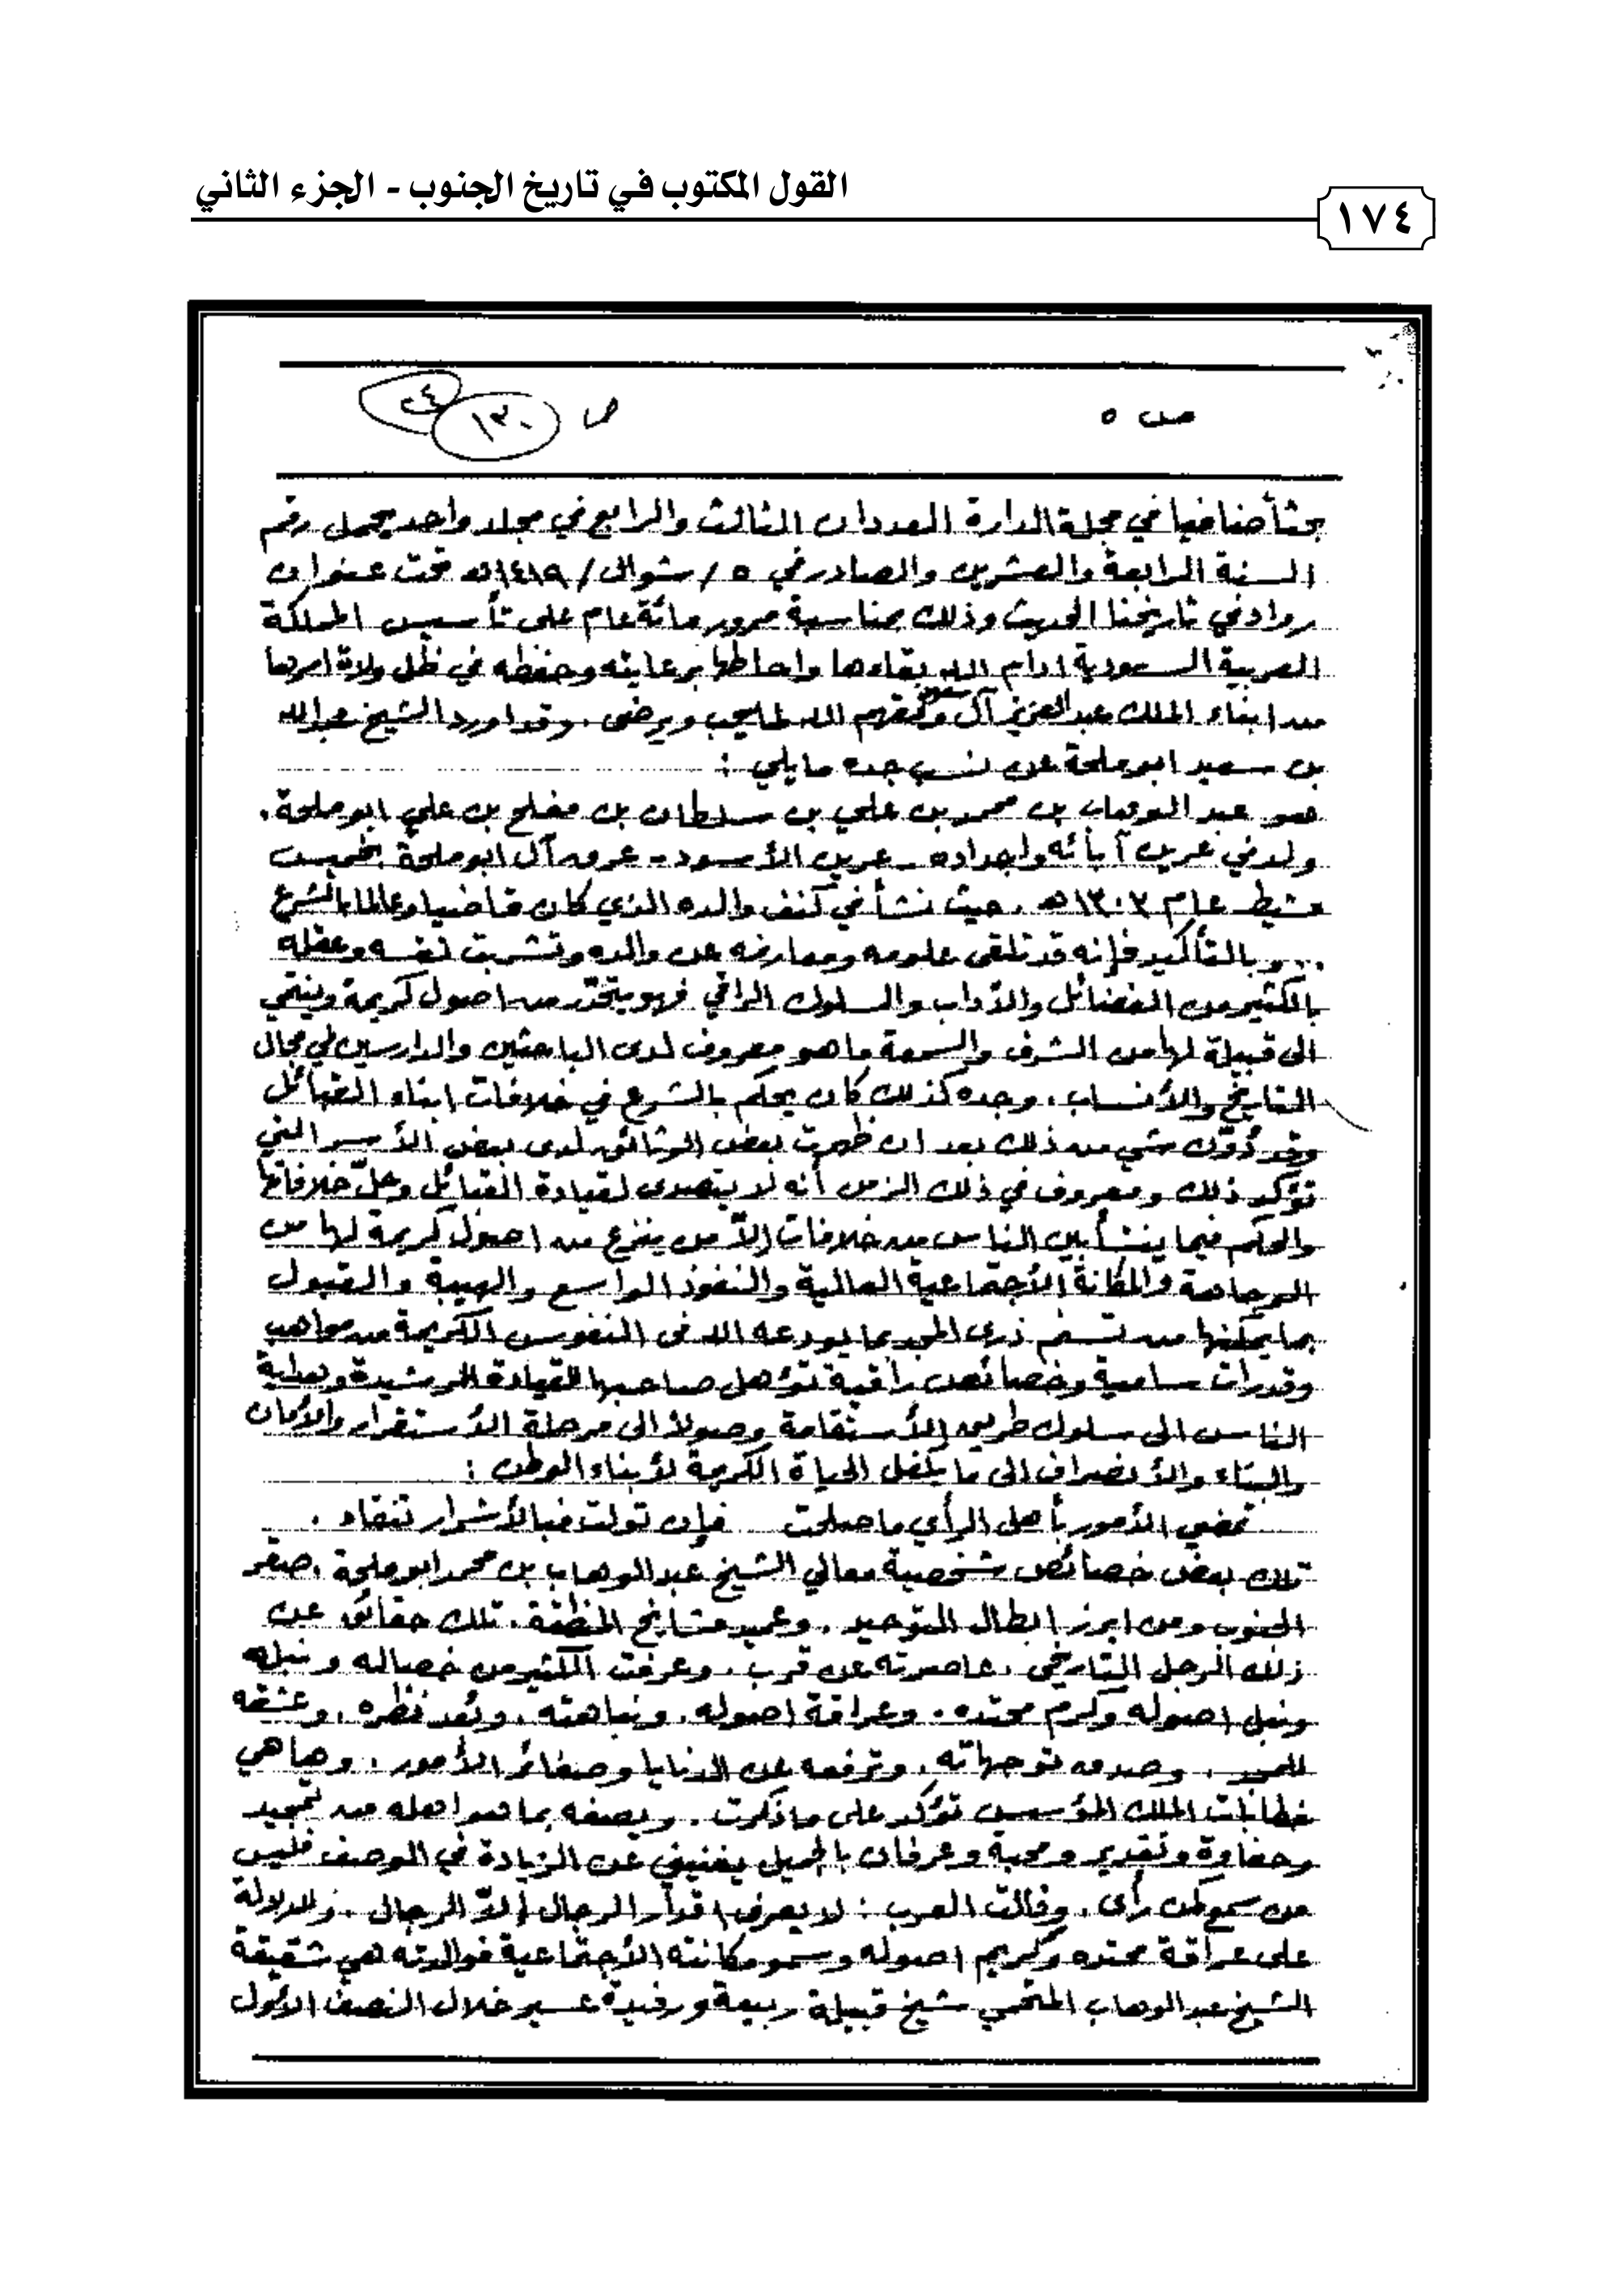 القول المكتوب في تاريخ الجنوب - الجزء الثاني
١٧٤
ص ٥
ص ١٣٠
٢٤
بحثأ ضافيا في مجلة الدارة العددان الثالث والرابع في مجلد واحد يحمل رقم
السنة الرابعة والعشرين والصادر في ٥ / شوال / ١٤١٩هـ تحت عنوان
رواد في تاريخنا الحديث وذلك بمناسبة مرور مائة عام على تأسيس المملكة
العربية السعودية ادام الله بقاءها واحاطها برعايته وحفظه في ظل ولاة امرها
من ابناء الملك عبد العزيز آل سعود وفقهم الله لما يحب ويرضى . وقد اورد الشيخ عبد الله
بن سعيد ابو ملحة عن نسب جده مايلي :
هو عبد الوهاب بن محمد بن علي بن سلطان بن مفلح بن علي ابو ملحة .
ولد في عرين آبائه واجداده - عرين الأسود - عرق آل ابو ملحة بخميس
مشيط عام ١٣٠٣هـ . حيث نشأ في كنف والده الذي كان قاضيا وعالما بالشرع
... وبالتأكيد فإنه قد تلقى علومه ومعارفه عن والده وتشربت نفسه وعقله
بالكثير من الفضائل والآداب والسلوك الراقي فهو يتحدر من اصول كريمة وينتمي
الى قبيلة لها من الشرف والسمعة ما هو معروف لدى الباحثين والدارسين في مجال
التاريخ والأنساب . وجده كذلك كان يحكم بالشرع في خلافات ابناء القبائل
وقد دُوّن شي من ذلك بعد ان ظهرت بعض الوثائق لدى بعض الأسر التي
تؤكد ذلك ومعروف في ذلك الزمن أنه لا يتصدى لقيادة القبائل وحلّ خلافاتها
والحكم فيما ينشأ بين الناس من خلافات إلاّ من ينزع من اصول كريمة لها من
الوجاهة والمكانة الأجتماعية العالية والنفوذ الواسع والهيبة والقبول
بما يمكنها من تسنم ذرى المجد بما يودعه الله في النفوس الكريمة من مواهب
وقدرات سامية وخصائص راقية تؤهل صاحبها للقيادة الرشيدة وهداية
الناس الى سلوك طريق الأستقامة وصولاً الى مرحلة الأستقرار والأمان
والبناء والأنصراف الى ما يكفل الحياة الكريمة لأبناء الوطن :
تمضي الأمور بأهل الرأي ما صلحت فإن تولت فبالأشرار تنقاد .
تلك بعض خصائص شخصية معالي الشيخ عبد الوهاب بن محمد ابو ملحة . صقر
الجنوب ومن ابرز ابطال التوحيد . وعميد مشايخ المنطقة . تلك حقائق عن
ذلك الرجل التاريخي . عاصرته عن قرب . وعرفت الكثير من خصاله ونبله
ونبل اصوله وكرم محتده . وعراقة اصوله . ونباهته . وبُعد نظره . وعشقه
للمجد . وصدق توجهاته . وترفعه عن الدنايا وصغائر الأمور . وها هي
خطابات الملك المؤسس تؤكد على ما ذكرت . ويصفه بما هو اهله من تمجيد
وحفاوة وتقدير ومحبة وعرفان بالجميل يغنيني عن الزيادة في الوصف فليس
من سمع كمن رأى . وقالت العرب : لا يعرف اقدار الرجال إلاّ الرجال . وللدلالة
على عراقة محتده وكريم اصوله وسمو مكانته الأجتماعية فوالدته هي شقيقة
الشيخ عبد الوهاب المتحمي شيخ قبيلة ربيعة ورفيدة عسير خلال النصف الأول